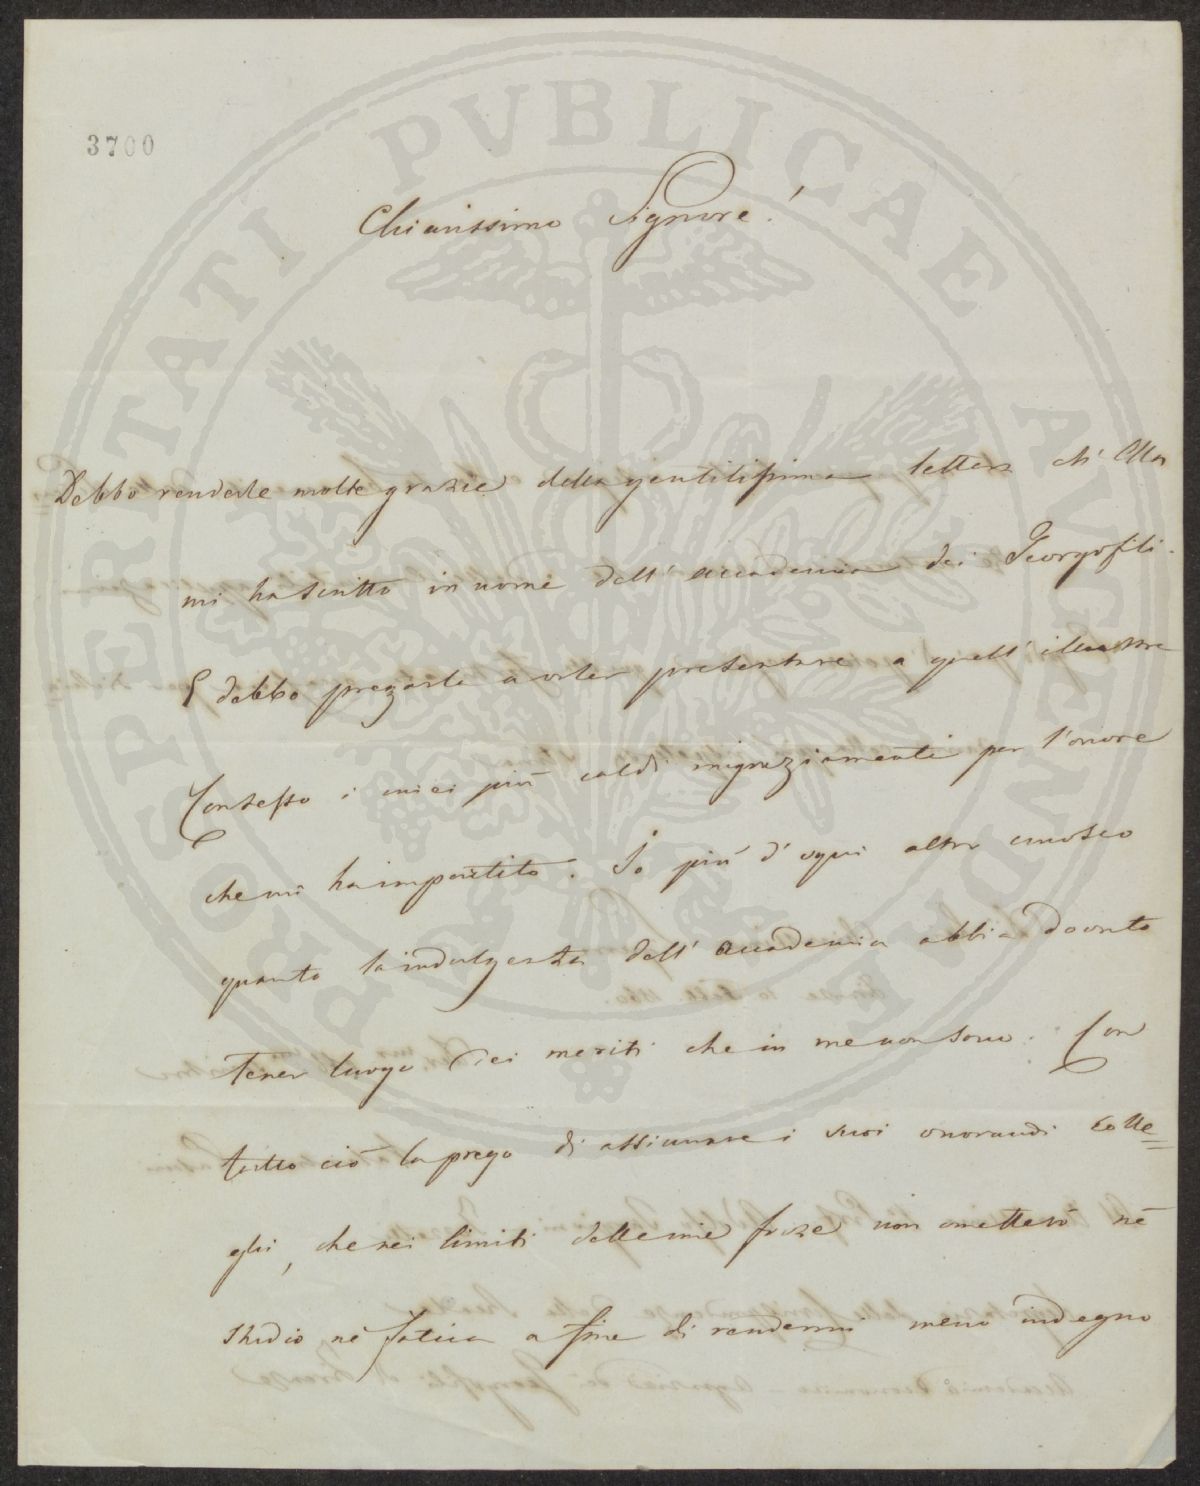 PROSPERITATI PVBLICAE AVGENDAE
3700
Chiarissimo Signore!
Debbo renderle molte grazie della gentilissima lettera ch' Ella
mi ha scritto in nome dell' accademia dei Georgofili.
E debbo pregarla a voler presentare a quell' illustre
Consesso i miei più caldi ringraziamenti per l'onore
che mi ha impartito. Io più d' ogni altro conosco
quanto la indulgenza dell' accademia abbia dovuto
tener luogo dei meriti che in me non sono. Con
tutto ciò la prego di assicurare i suoi onorandi Colle=
ghi, che nei limiti delle mie forze non ometterò nè
studio nè fatica a fine di rendermi meno indegno